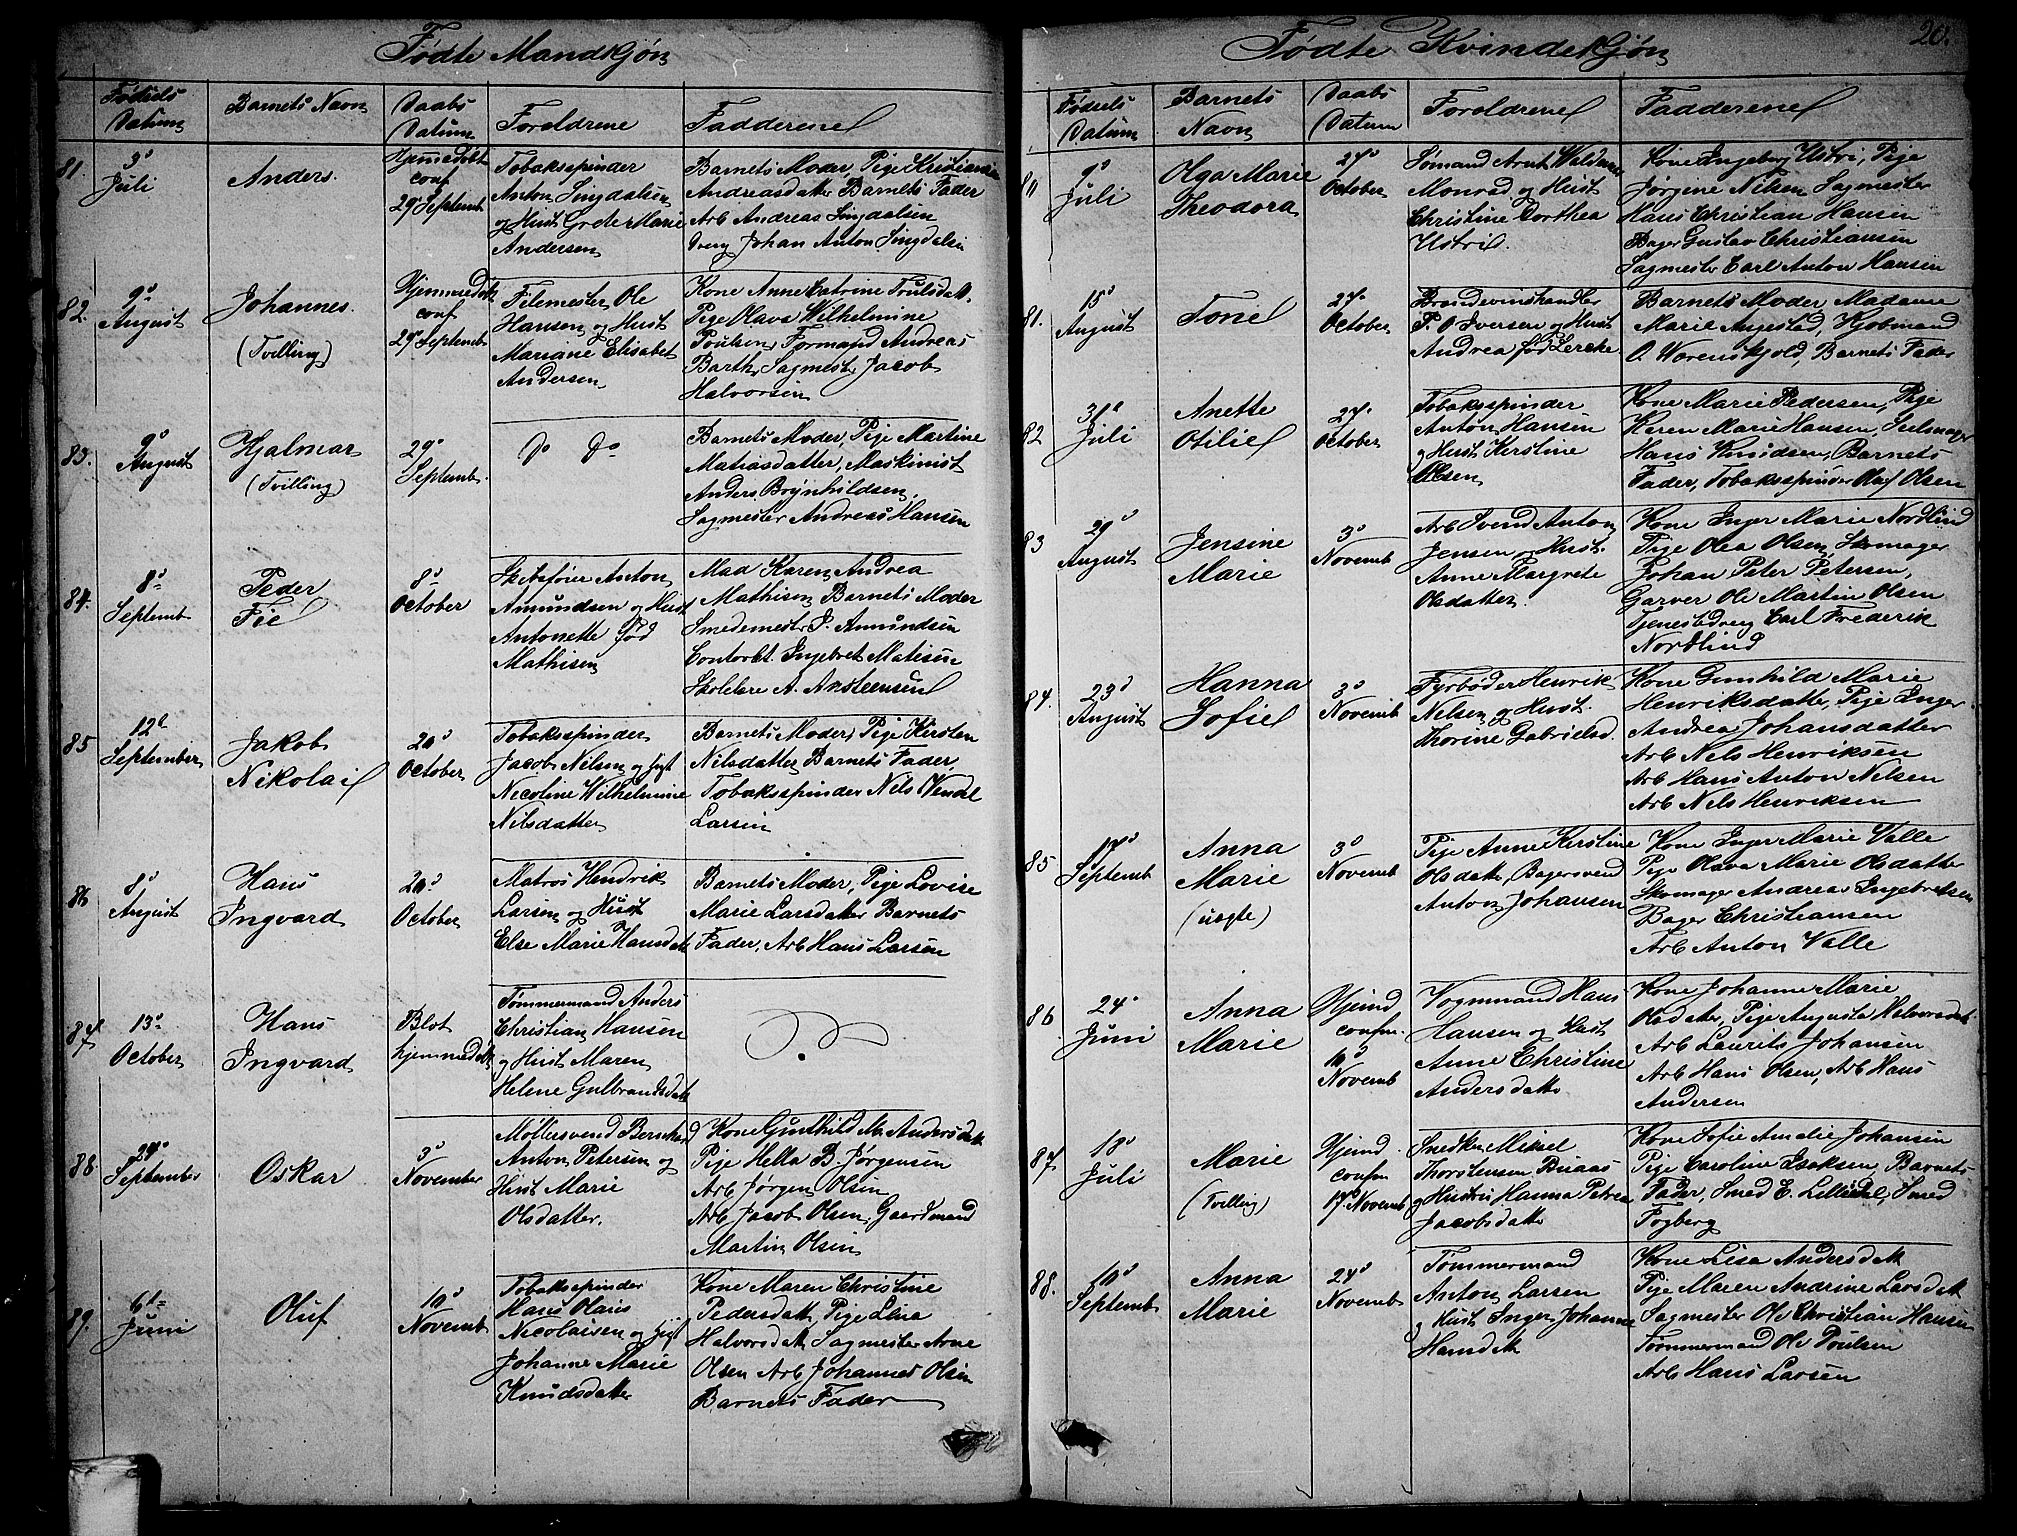 Fødte Mandkjøn
Fødsels Datum
Barnets Navn
Daabs Datum
Foreldrene
Fadderene
81.
3d Juli
Anders.
Hjemmedøbt
conf
29d Septemb
Tobaksspinder
Anton Lingdalsen
og Hust Grete Marie
Andersen
Barnets Moder, Pige Kristiansia
Andreasdatter Barnets Fader
Arb Andreas Lingdalsen
Dreng Johan Anton Lingdalsen
82.
9d August
Johannes.
(Tvilling)
Hjemmedøb
conf
29d Septemb
Filemester Ole
Hansen og Hust
Mariane Elisabet
Andersen
Kone Anne Catrine Trulsdatt.
Pige Olava Wilhelmine
Poulsen, Formand Andreas
Barth, Sagmester Jacob
Halvorsen
83.
9d August
Hjalmar
(Tvilling)
29d
Septemb.
Do Do
Barnets Moder, Pige Martine
Matiasdatter, Maskinist
Anders Brynhildsen,
Sagmester Andreas Hansen
84.
8d
Septemb
Peder
Fie
8d
October
Anton
Amundsen og Hust
Antonette fød
Mathisen
Mad Karen Andrea
Mathisen Barnets Moder
Smedemester P. Amundsen
Contorbt. Ingebret Matisen
Skolelærer A. Aksteensen
85
12d
September
Jakob
Nikolai
20d
October
Tobaksspinder
Jacob Nilsen og Hust
Nicoline Wilhelmine
Nilsdatter
Barnets Moder, Pige Kirsten
Nilsdatter Barnets Fader,
Tobaksspinder Nils Wendel
Larsen
86
8d
August
Hans
Ingvard
20d
October
Matros Hendrik
Larsen og Hust
Else Marie Hansdatt
Barnets Moder, Pige Lovise
Marie Larsdatter Barnets
Fader, Arb Hans Larsen
87
13d
October
Hans
Ingvard
Blot
hjemmedøbt
Tømmermand Anders
Christian Hansen
og Hust Maren
Helene Gulbrandsdatt
88
29d
September
Oskar
3d
November
Møllersvend Bernhard
Anton Petersen og
Hust Marie
Olsdatter.
Kone Gunhild M. Andersdatt
Pige Hella B. Jørgensen
Arb Jørgen Olsen
Arb Jacob Olsen, Gaardmand
Martin Olsen
89.
6te
Juni
Oluf
10d
Novemb
Tobaksspinder
Hans Olaus
Nicolaisen og Hust
Johanne Marie
Knudsdatter
Kone Maren Christine
Pedersdatt, Pige Lina
Halvorsdatt Sagmester Arne
Olsen Arb Johannes Olsen
Barnets Fader
Fødte Kvindekjøn
20.
Fødsels Datum
Barnets Navn
Daabs Datum
Foreldrene
Fadderene
80
9d
Juli
Olga Marie
Theodora
27d
October
Sømand Arnt Waldem.
Monrad og Hust
Christine Dorthea
Ustvi.
Kone Ingeborg Ustvi, Pige
Jørgine Nilsen Sagmester
Hans Christian Hansen
Bager Gustav Christiansen
Sagmester Carl Anton Hansen
81.
15d
August
Tone
27d
October
Brændevinshandler
P. O Iversen og Hust
Andrea fød Lercke
Barnets Moder Madame
Marie Angestad, Kjøbmand
O. Werenskjold, Barnets Fader
82
31d
Juli
Anette
Otilie
27d
October
Tobaksspinder
Anton Hansen
og Hust Kerstine
Olsen
Kone Marie Pedersen, Pige
Karen Marie Hansen, Seilmager
Hans Knudsen, Barnets
Fader, Tobaksspinder Olaf Olsen
83
29d
August
Jensine
Marie
3d
Novemb
Arb Svend Anton
Jensen og Hust.
Anne Margrete
Olsdatter.
Kone Inger Marie Nordlind
Pige Olea Olsen, Skomager
Johan Peter Petersen,
Garver Ole Martin Olsen
Tjenestedreng Carl Frederik
Nordlind
84.
23d
August
Hanna
Sofie
3d
Novemb
Fyrbøder Henrik
Nelsen og Hust.
Thorine Gabrielsd.
Kone Gunhild Marie
Henriksdatter, Pige Inger
Andrea Johansdatter
Arb Nels Henriksen
Arb Hans Anton Nelsen
Arb Nils Henriksen
85
17d
Septemb
Anna
Marie
(uægte)
3d
Novemb
Pige Anne Kerstine
Olsdatt, Bagersvend
Anton Johansen
Kone Inger Marie Valle
Pige Olava Marie Olsdatter
Skomager Andreas Ingebretsen
Bager Christiansen
Arb Anton Valle
86
24d
Juni
Anna
Marie
Hjemd
confm.
10d
Novemb
Vognmand Hans
Hansen og Hust
Anne Christine
Andersdatt
Kone Johanne Marie
Olsdatter, Pige Augusta Halvorsdatt
Arb Laurits Johansen
Arb Hans Olsen, Arb Hans
Andersen
87
18d
Juli
Marie
(Tvilling)
Hjemd
confm
17d Novemb
Snedker Mikael
Thorstensen Buaas
og Hustru Hanna Petrea
Jacobsdatt
Kone Sofie Amalie Johansen
Pige Caroline Isaksen, Barnets
Fader, Smed E. Lilliedal, Smed
Fogberg
88.
10d
Septemb
Anna
Marie
24d
Novemb
Tømmermand
Anton Larsen
og Hust Inger Johanne
Hansdatt
Kone Lisa Andersdatt
Pige Maren Andrine Larsdatt
Sagmester Ole Christian Hansen
Tømmermand Ole Poulsen
Arb Hans Larsen